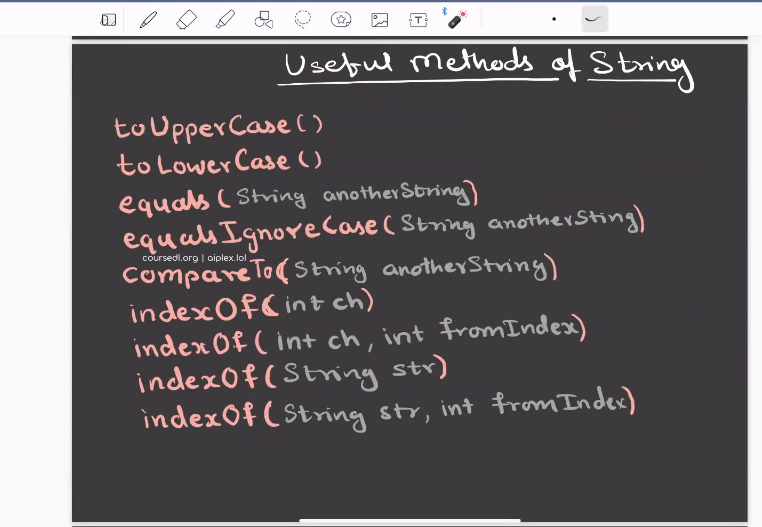 Useful Methods of String
toUpperCase()
toLowerCase()
equals(String anotherString)
equalsIgnoreCase(String anotherSting)
coursedl.org | aiplex.lol
compareTo(String anotherString)
indexOf(int ch)
indexOf(int ch, int fromIndex)
indexOf(String str)
indexOf(String str, int fromIndex)